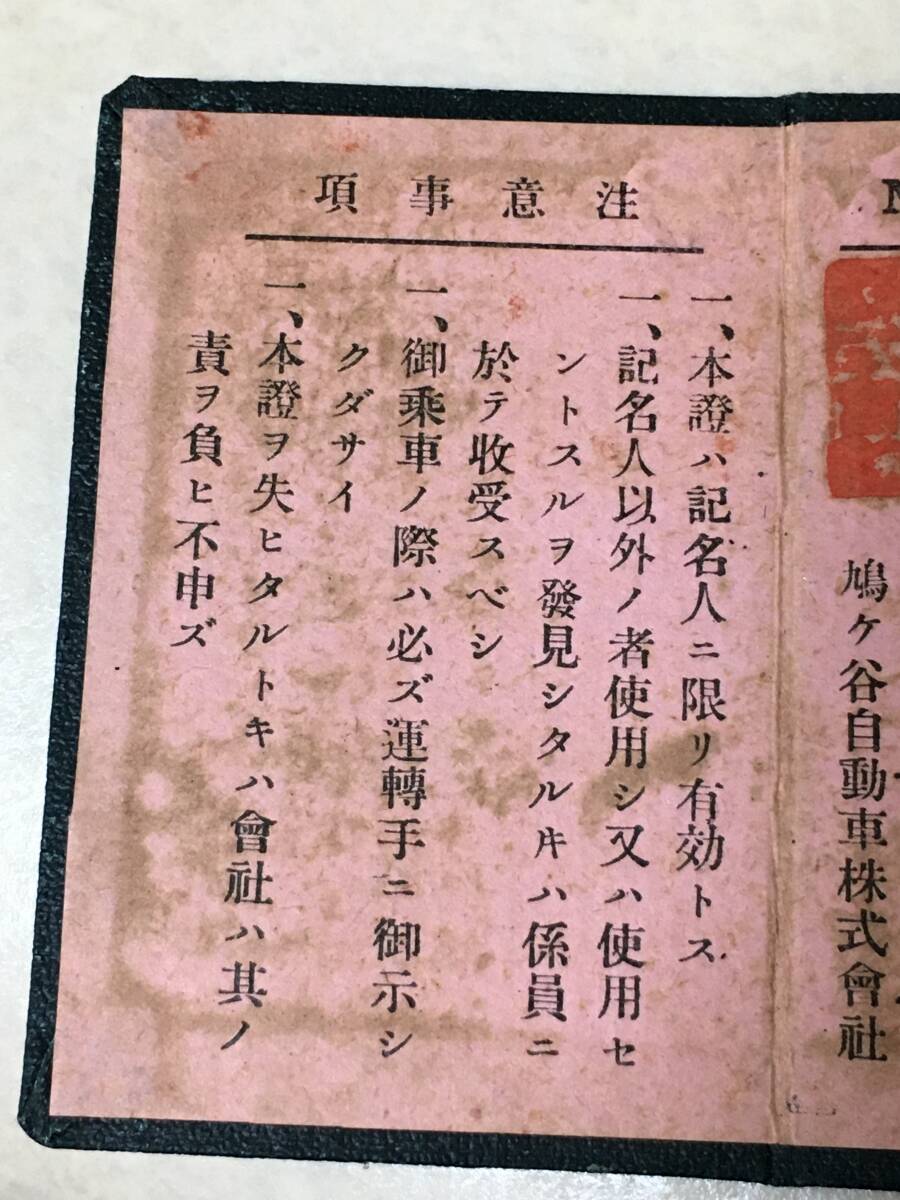 注意事項
一、本證ハ記名人ニ限リ有効トス
一、記名人以外ノ者使用シ又ハ使用セ
ントスルヲ發見シタル𪜈ハ係員ニ
於テ收受スベシ
一、御乘車ノ際ハ必ズ運轉手ニ御示シ
クダサイ
一、本證ヲ失ヒタルトキハ會社ハ其ノ
責ヲ負ヒ不申ズ
鳩ケ谷自動車株式會社